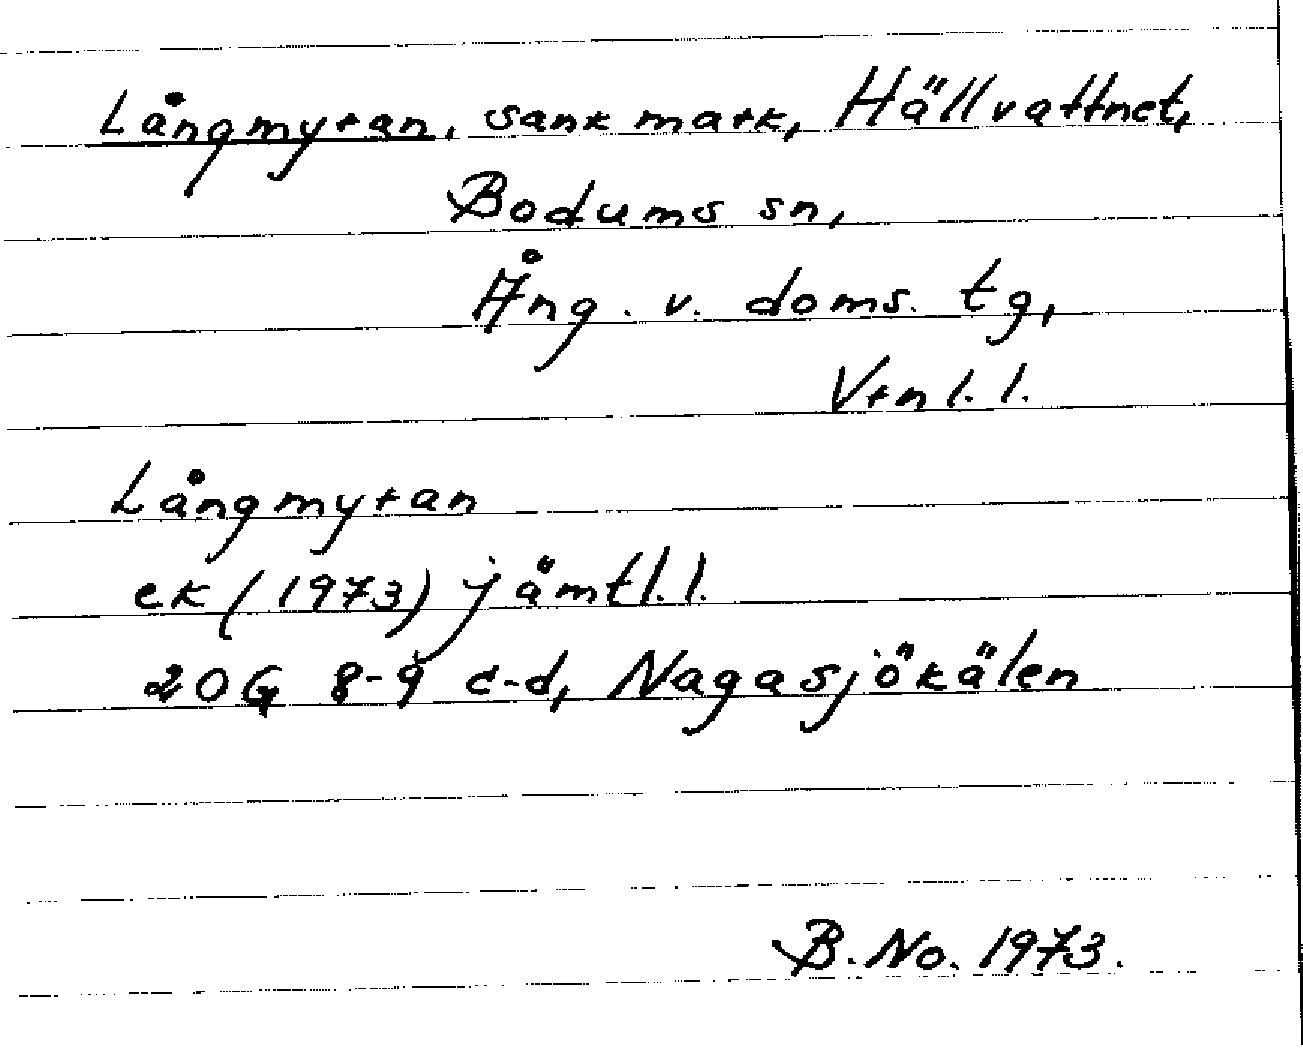 Långmyran, sank mark, Hällvattnet,
Bodums sn,
Ång. v. doms. tg,
Vrnl. l.
Långmyran
ek (1973) jämtl. l.
20G 8-9 c-d, Nagasjökälen
B. No. 1973.